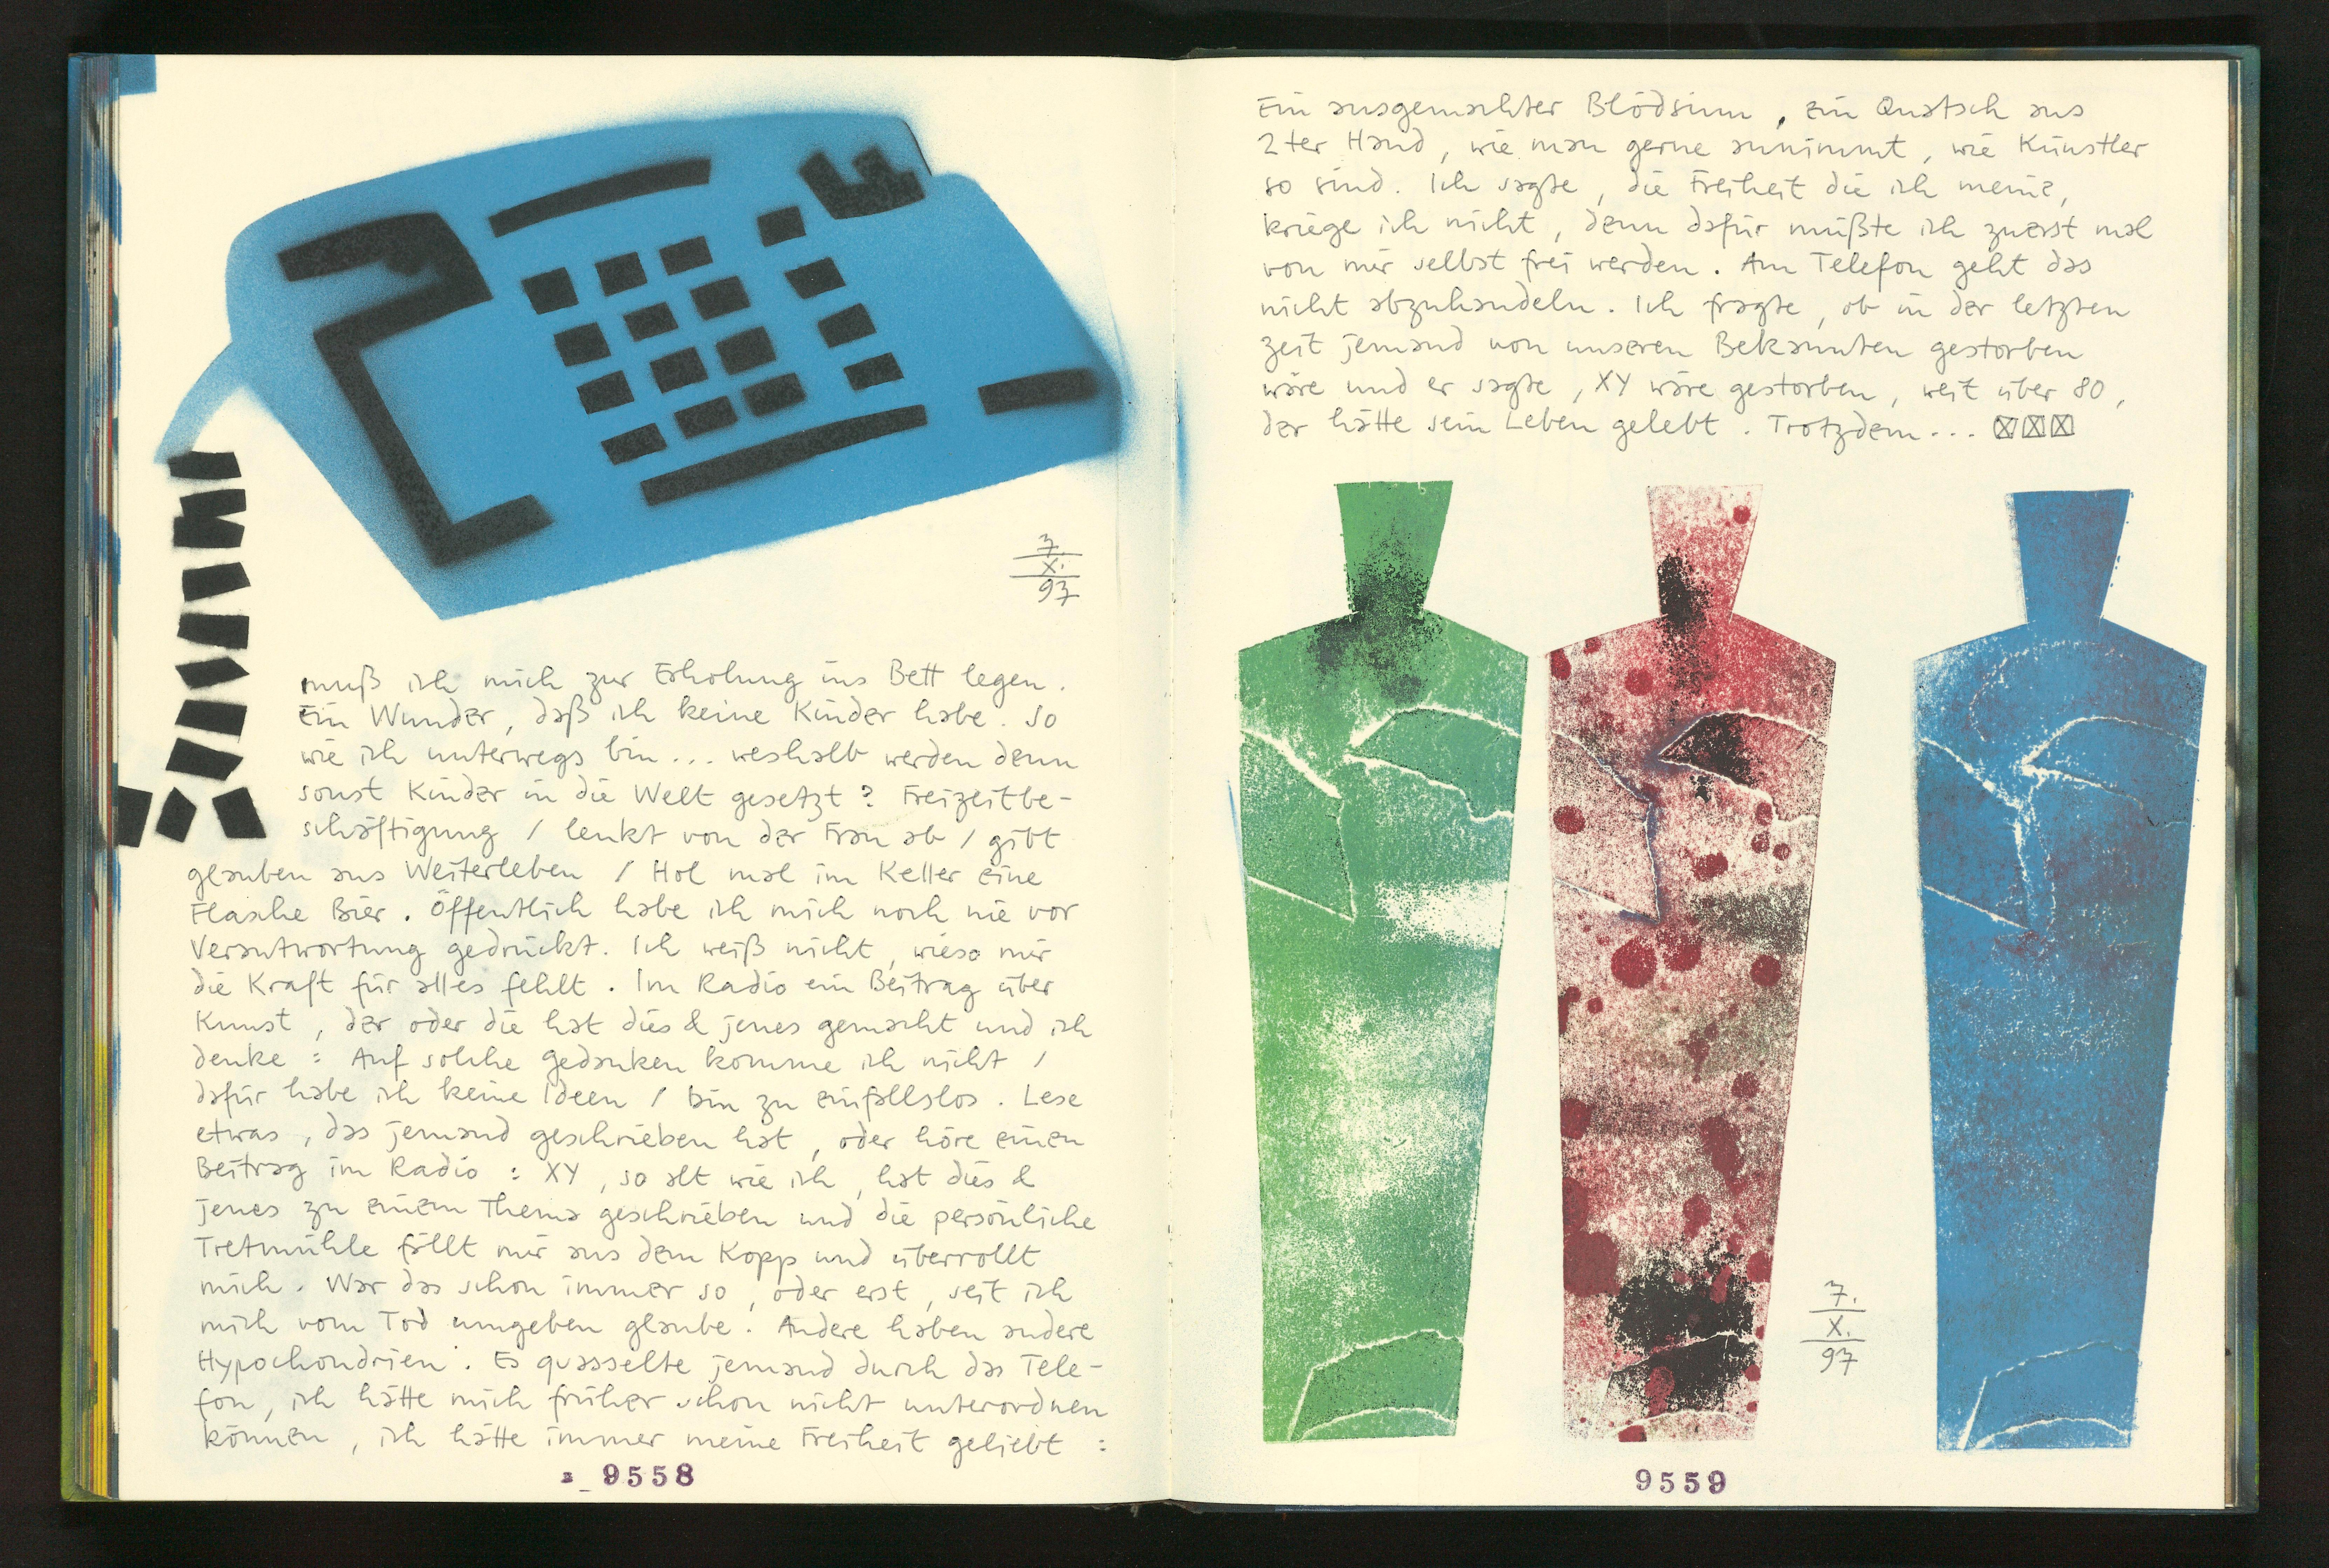 7.
X.
97
muß ich mich zur Erholung ins Bett legen.
Ein Wunder, daß ich keine Kinder habe. So
wie ich unterwegs bin... weshalb werden denn
sonst Kinder in die Welt gesetzt? Freizeitbe-
schäftigung / lenkt von der Frau ab / gibt
glauben ans Weiterleben / Hol mal im Keller eine
Flasche Bier. Öffentlich habe ich mich noch nie vor
Verantwortung gedrückt. Ich weiß nicht, wieso mir
die Kraft für alles fehlt. Im Radio ein Beitrag über
Kunst, der oder die hat dies & jenes gemacht und ich
denke: Auf solche Gedanken komme ich nicht /
dafür habe ich keine Ideen / bin zu einfallslos. Lese
etwas, das jemand geschrieben hat, oder höre einen
Beitrag im Radio: XY, so alt wie ich, hat dies &
jenes zu einem Thema geschrieben und die persönliche
Tretmühle fällt mir aus dem Kopp und überrollt
mich. War das schon immer so, oder erst, seit ich
mich vom Tod umgeben glaube. Andere haben andere
Hypochondrien. Es quasselte jemand durch das Tele-
fon, ich hätte mich früher schon nicht unterordnen
können, ich hätte immer meine Freiheit geliebt:
9558
Ein ausgemachter Blödsinn, ein Quatsch aus
2ter Hand, wie man gerne annimmt, wie Künstler
so sind. Ich sagte, die Freiheit die ich meine,
kriege ich nicht, denn dafür müßte ich zuerst mal
von mir selbst frei werden. Am Telefon geht das
nicht abzuhandeln. Ich fragte, ob in der letzten
Zeit jemand von unseren Bekannten gestorben
wäre und er sagte, XY wäre gestorben, weit über 80,
der hätte sein Leben gelebt. Trotzdem...
7.
X.
97
9559